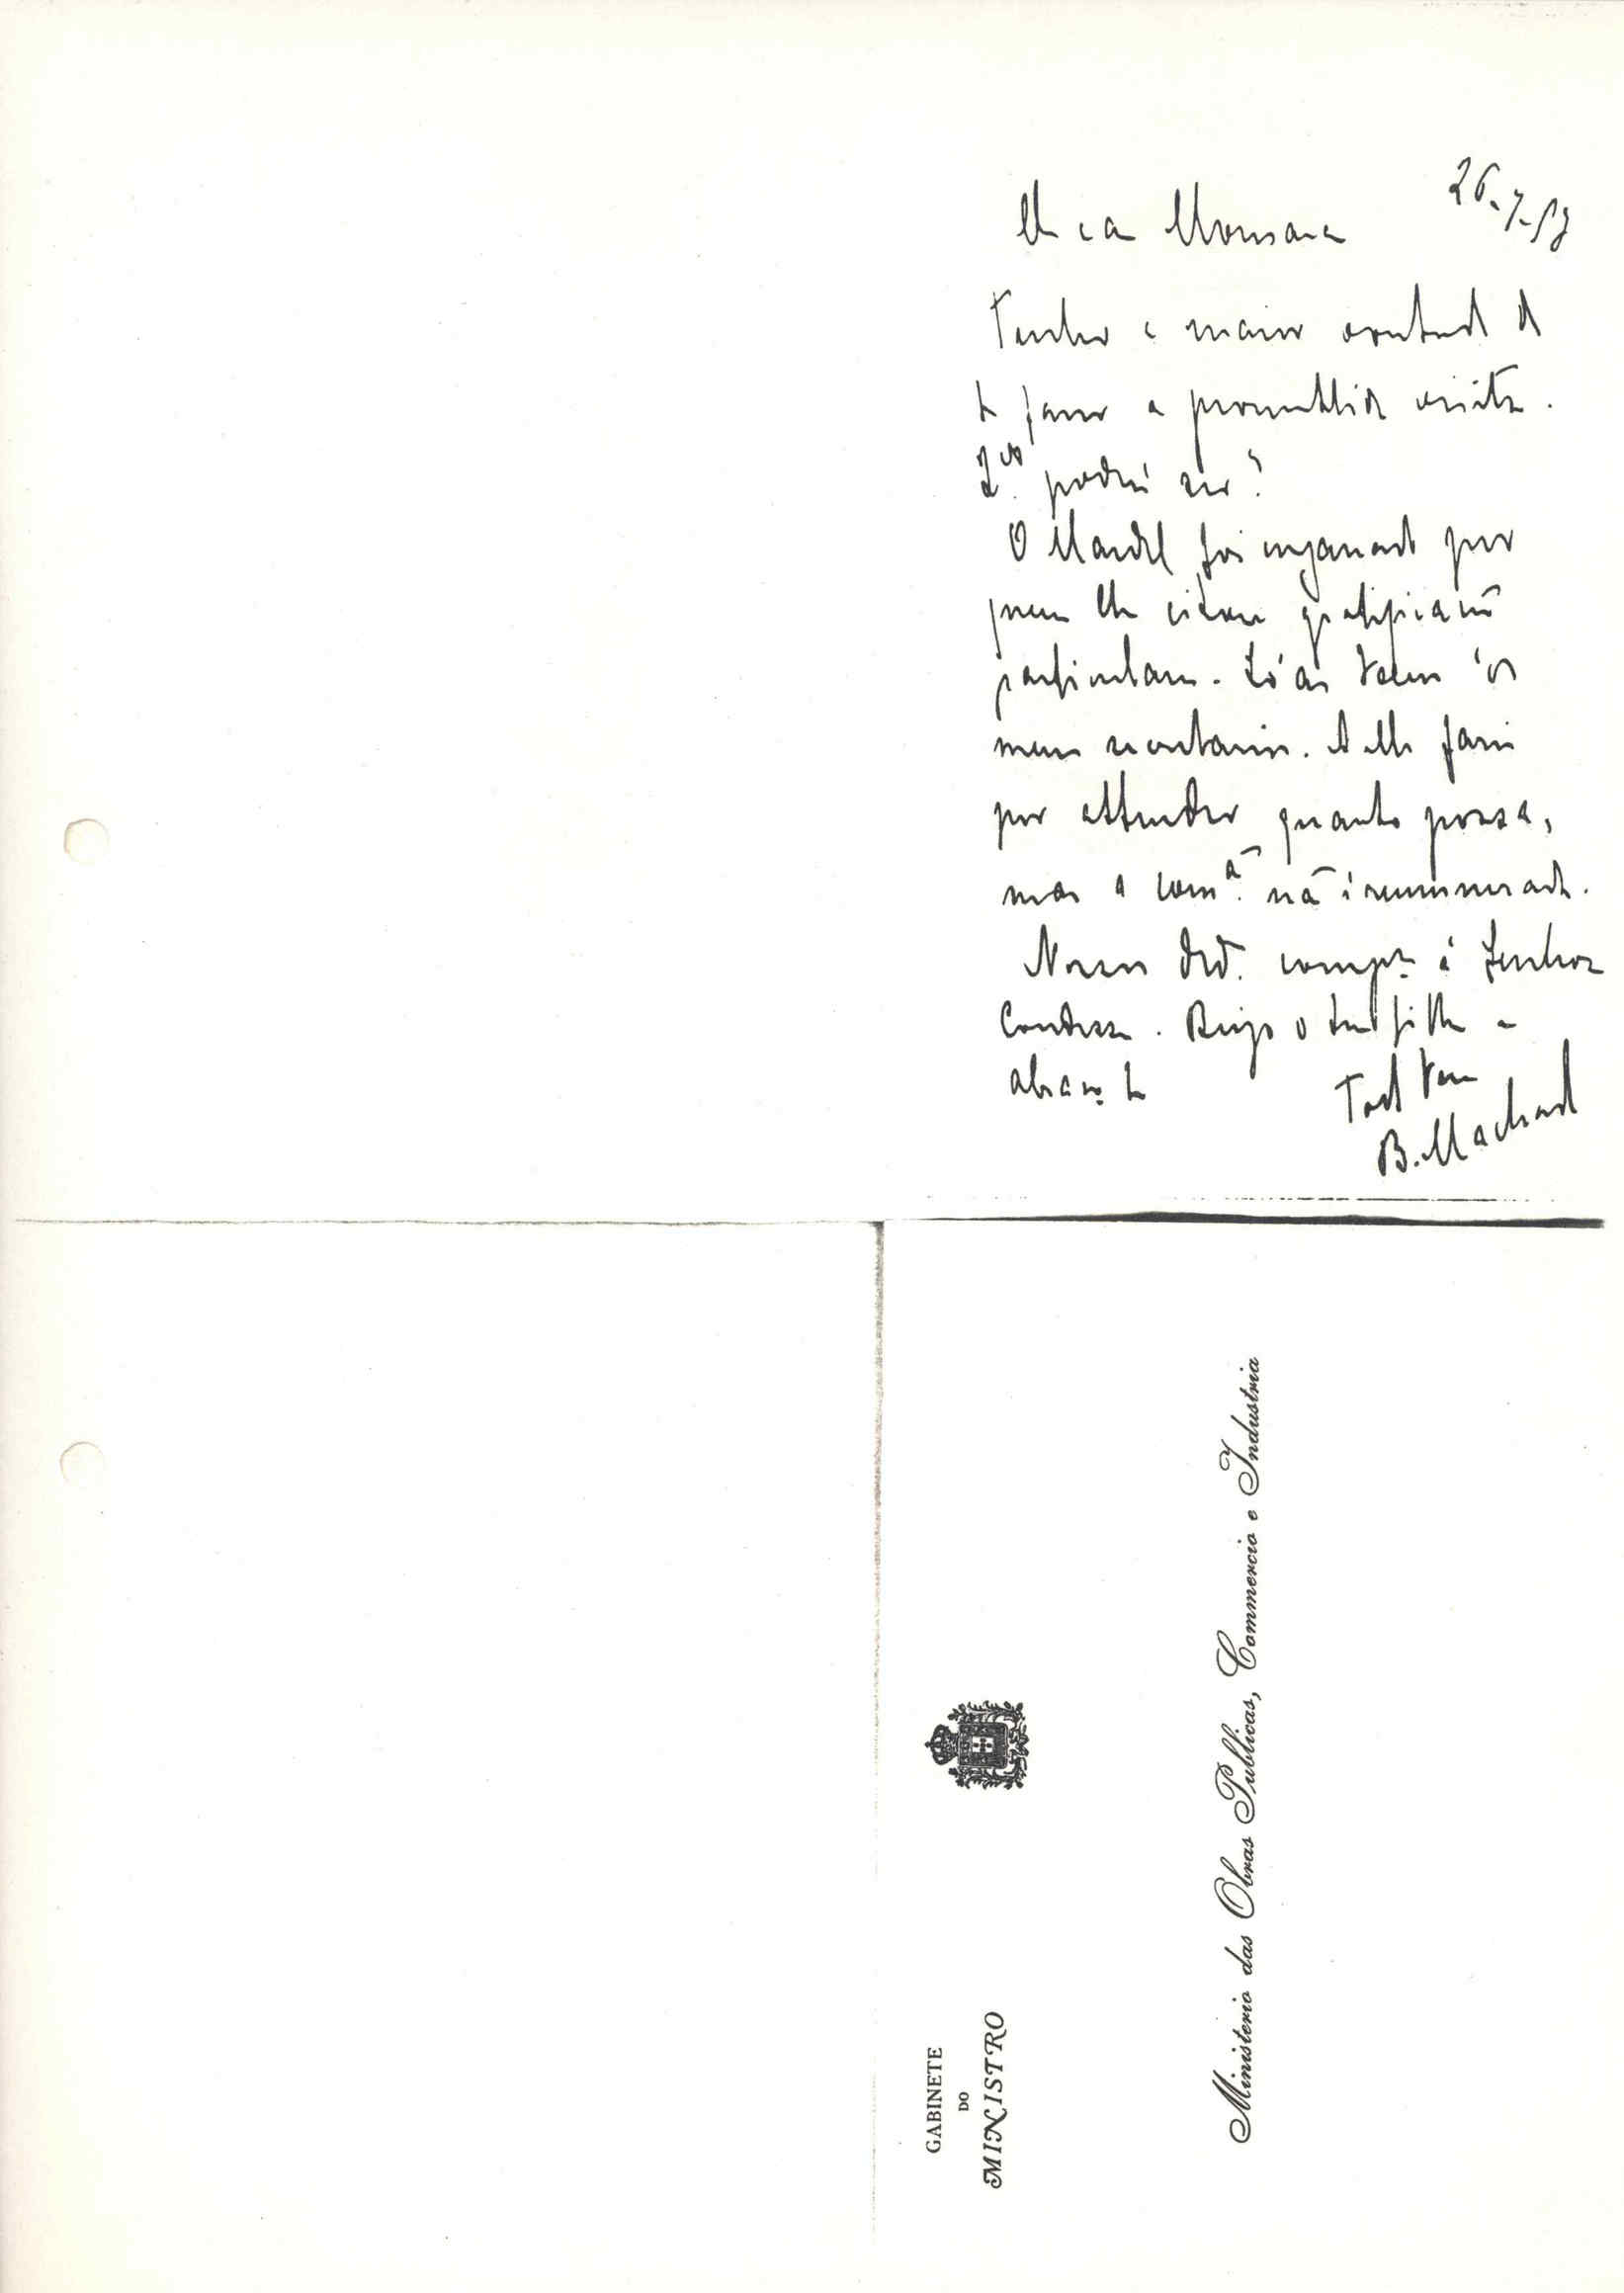 26-7-93
Meu caro Monsaraz
Tenho a maior vontade de
te fazer a promettida visita.
poderá ser?
O Mardel foi enganado por
quem lhe citou gratificações
particulares. Só as teem os
meus secretarios. A elle farei
por attender quanto possa,
mas a com.ão não é remunerada.
Nossos comp.tos á Senhora
Condessa. Beijo o teu filho e
abraço-te
Todo teu
B. Machado
GABINETE
DO
MINISTRO
Ministerio das Obras Publicas, Commercio e Industria